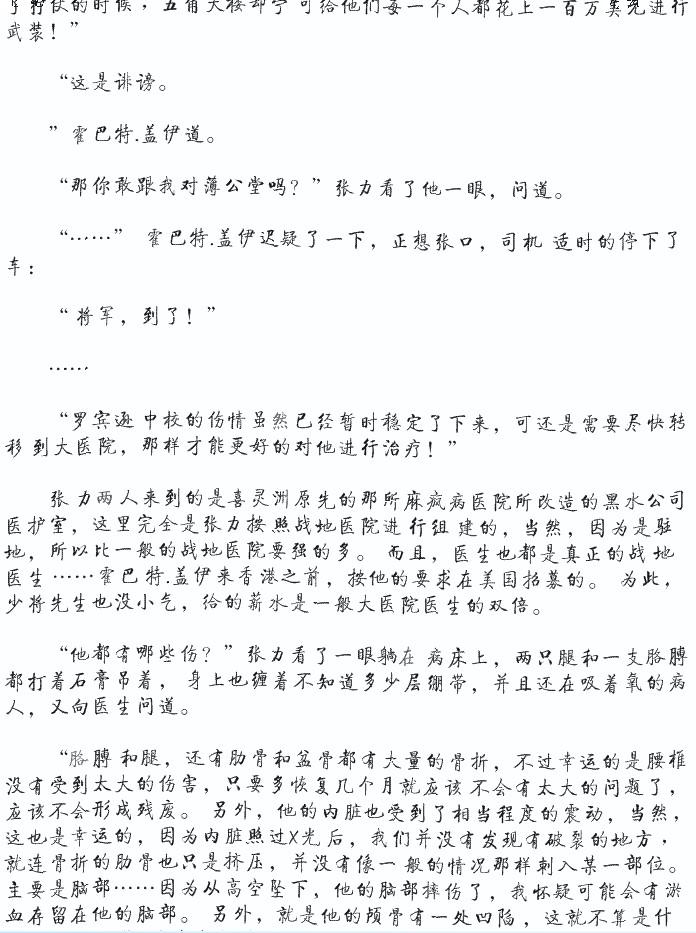 了打仗的时候，五角大楼却宁可给他们每一个人都花上一百万美元进行
武装！”
“这是诽谤。
”霍巴特.盖伊道。
“那你敢跟我对薄公堂吗？”张力看了他一眼，问道。
“……” 霍巴特.盖伊迟疑了一下，正想张口，司机 适时的停下了
车：
“将军，到了！”
……
“罗宾逊 中校的伤情虽然已经暂时稳定了下来，可还是需要尽快转
移到大医院，那样才能更好的对他进行治疗！”
张力两人来到的是喜灵洲原先的那所麻疯病医院所改造的黑水公司
医护室，这里完全是张力按照战地医院进行组建的，当然，因为是驻
地，所以比一般的战地医院要强的多。 而且，医生也都是真正的战地
医生……霍巴特.盖伊来香港之前，按他的要求在美国招募的。 为此，
少将先生也没小气，给的薪水是一般大医院医生的双倍。
“他都有哪些伤？”张力看了一眼躺在 病床上，两只腿和一支胳膊
都打着石膏吊着，身上也缠着不知道多少层绷带，并且还在吸着氧的病
人，又向医生问道。
“胳膊 和腿，还有肋骨和盆骨都有大量的骨折，不过幸运的是腰椎
没有受到太大的伤害，只要多恢复几个月就应该不会有太大的问题了，
应该不会形成残废。 另外，他的内脏也受到了相当程度的震动，当然，
这也是幸运的，因为内脏照过X光后，我们并没有发现有破裂的地方，
就连骨折的肋骨也只是挤压，并没有像一 般的情况那样刺入某一部位。
主要是脑部……因为从高空坠下，他的脑部摔伤了，我怀疑可能会有淤
血存留在他的脑部。 另外，就是他的颅骨有一处凹陷，这就不算是什